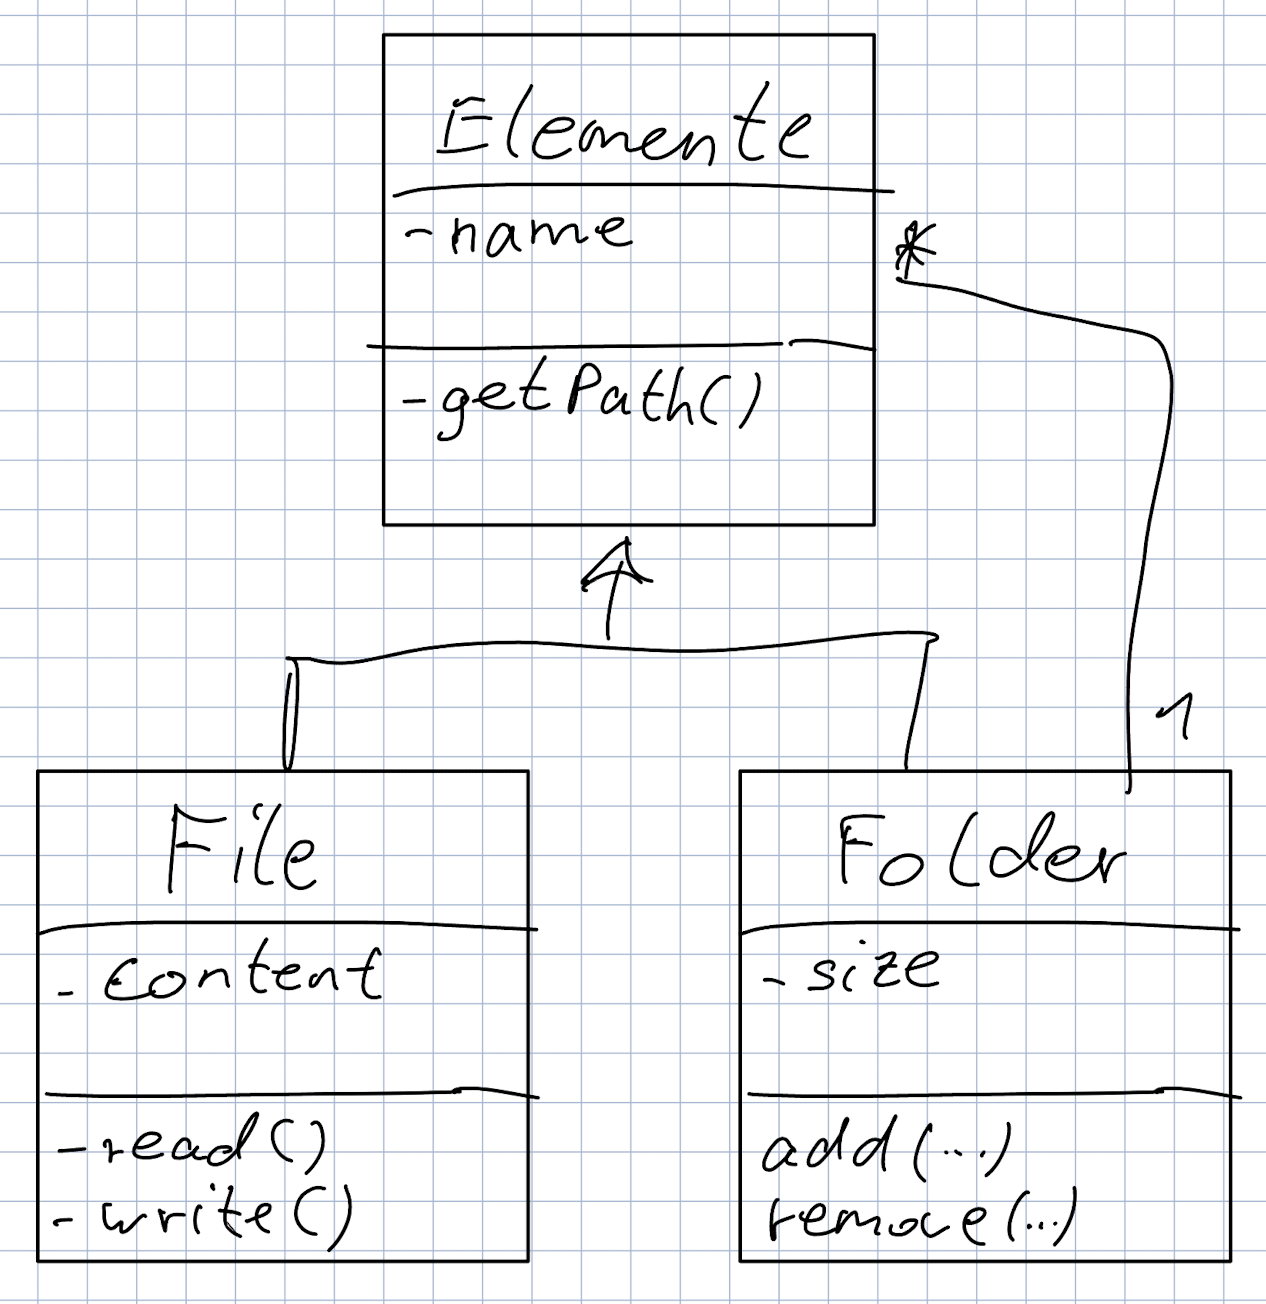 Elemente
-name
*
-getPath()
1
File
- Content
-read()
- write()
Folder
-size
add(...)
remove(...)